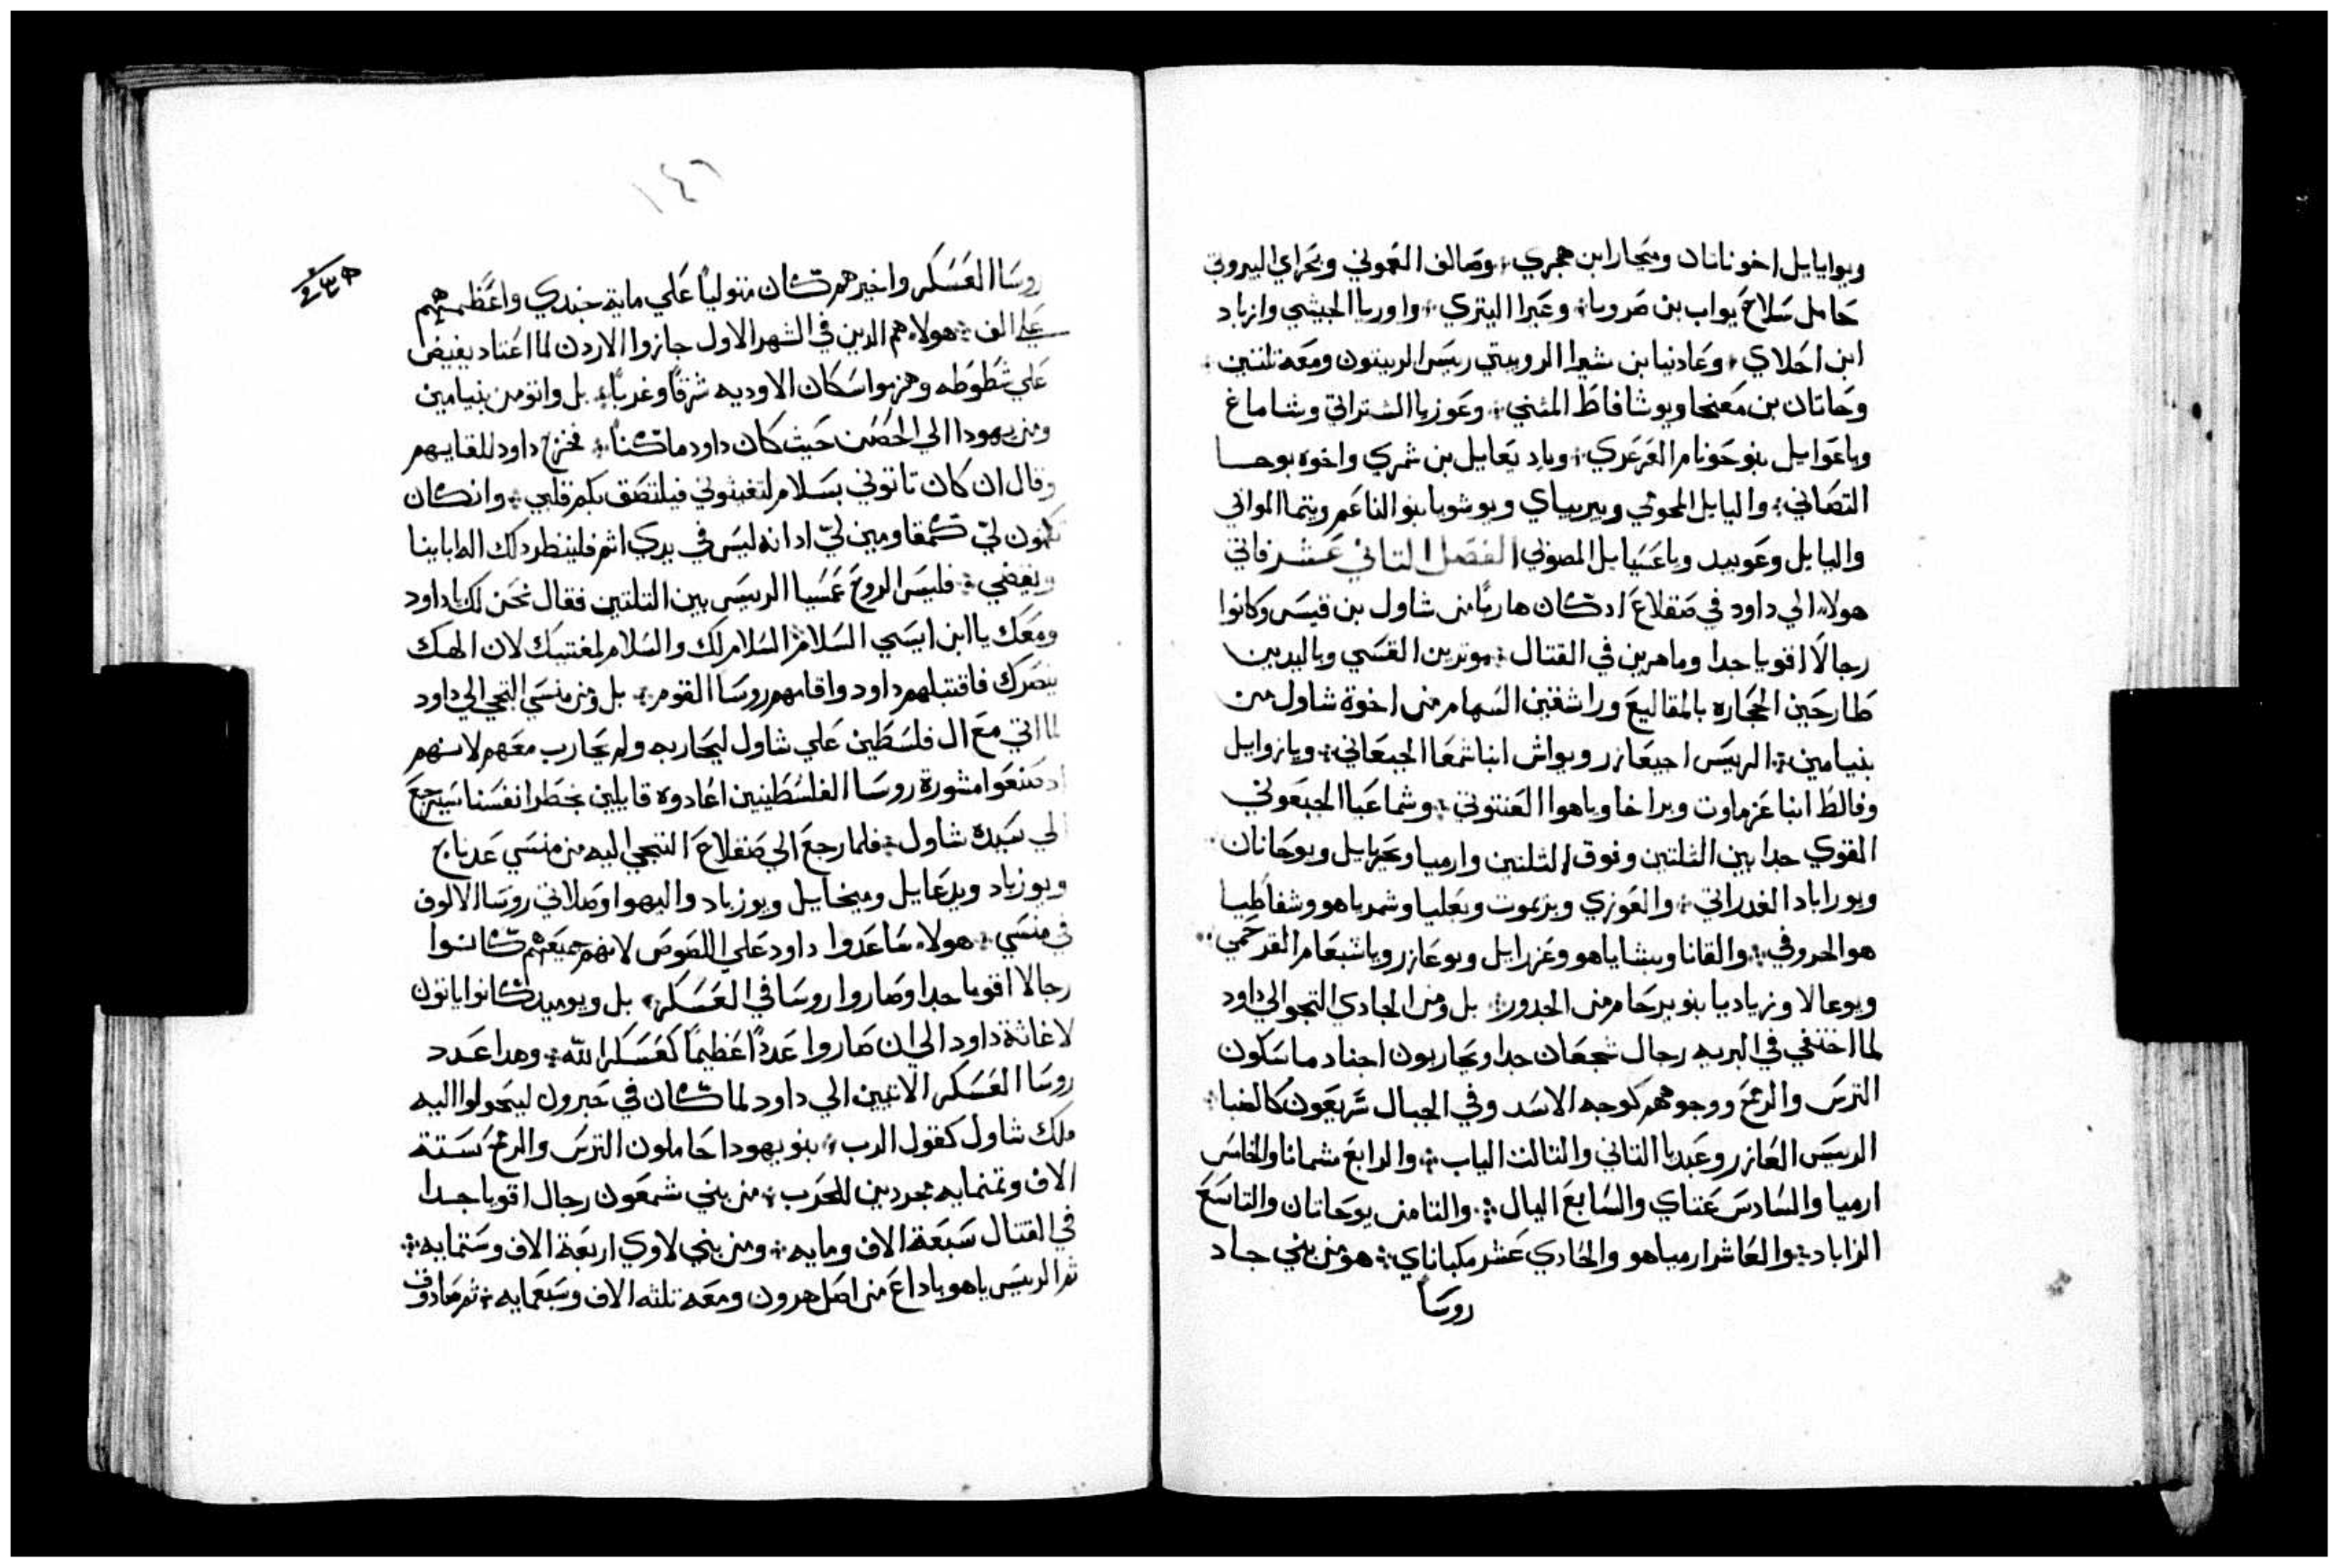 ويوايايل اخو ناتان وميحار ابن هجري؛ وصالف العموني ونحراي البيروتي
حامل سلاح يواب بن صرويا؛ وعيرا اليتري؛ واوريا الحيثي وازباد
ابن احلاي؛ وعادنيا بن شيرا الروبيتي رييس الربيتون ومعه تلتين؛
وحانان بن معخا ويوشافاط المثني؛ وعوزيا الشتراتي وشاماع
وياعوايل بنو حوتام العرعري؛ وياديعايل بن شمري واخوه يوحا
التصاني؛ واليايل المحوتي ويريباي ويوشويا بنو الناعم ويتما الموابي
واليايل وعوبيد وياعسيايل المصوني الفصل التاني عشر فاتي
هولاء الي داود في صقلاع اد كان هاربًا من شاول بن قيس وكانوا
رجالًا اقويا جدا وماهرين في القتال؛ موترين القسي وباليدين
طارحين الحجاره بالمقاليع وراشقين السهام من اخوة شاول من
بنيامين؛ الرييس احيعازر ويواش ابنا شمعا الجبعاني؛ ويازوايل
وفالط ابنا عزماوت وبراخا وياهوا العنتوتي؛ وشماعيا الجبعوني
القوي جدا بين الثلتين وفوق الثلتين وارميا ونحزيايل ويوحانان
ويوراباد الغدراتي؛ والعوزي ويريموت وبعليا وشمرياهو وشفاطيا
هو الحروفي؛ والقانا ويشاياهو وعزرايل ويوعازر وياشبعام القرحمي؛
ويوعالا وزياديا بنو يرحام من الجدور؛ بل ومن الجادي التجوالي داود
لما اختفي في البريه رجال شجعان جدا ومحاربون اجناد ماسكون
الترس والرمح ووجوههم كوجه الاسد وفي الجبال سريعون كالضبا؛
الرييس العازر وعبديا التاني والتالت الياب؛ والرابع شمانا والخامس
ارميا والسادس عتاي والسابع اليال؛ والتامن يوحانان والتاسع
الزاباد؛ والعاشر ارمياهو والحادي عشر مكباناي؛ هو من بني جاد
روسا
١٤٦
روسا العسكر واخيرهم كان متوليًا علي ماية جندي واعظمهم
علي الف؛ هولاء هم الدين في الشهر الاول جازوا الاردن لما اعتاد يفيض
علي شطوطه وهزموا سكان الاوديه شرقًا وغربًا؛ بل واتو من بنيامين
ومن يهودا الي الحصن حيث كان داود ماكنًا؛ فخرج داود للقايهم
وقال ان كان تاتوني بسلام لتغيثوني فيلتصق بكم قلبي؛ وان كان
تكمنون لي كمقاومين لي اد انه ليس في يدي اثم فلينظر دلك اله ابايينا
ويقضي؛ فلبس الروح عمسيا الرييس بين التلتين فقال نحن لك يا داود
ومعك يا ابن ايسي السلام السلام لك والسلام لمغتيك لان الهك
ينصرك فاقتبلهم داود واقامهم روسا القوم؛ بل ومن منسي التجي الي داود
لما اتي مع ال فلسطين علي شاول ليحاربه ولم يحارب معهم لانهم
اد صنعوا مشورة روسا الفلسطينين اعادوه قايلين بخطر انفسنا سيرجع
الي سيده شاول؛ فلما رجع الي صقلاع التجي اليه من منسي عدناج
ويوزباد ويدعايل وميخايل ويوزباد واليهوا وصلاتي روسا الالوف
في منسي؛ هولاء ساعدوا داود علي اللصوص لانهم جميعهم كانوا
رجالا اقويا جدا وصاروا روسا في العسكر؛ بل ويوميد كانوا ياتون
لاغاثة داود الي ان صاروا عددًا عظيمًا كعسكر الله؛ وهدا عدد
روسا العسكر الاتيين الي داود لما كان في حبرون ليحولوا اليه
ملك شاول كقول الرب؛ بنو يهودا حاملون الترس والرمح ستة
الاف وتمنمايه مجردين للحرب؛ من بني شمعون رجال اقويا جدا
في القتال سبعة الاف ومايه؛ ومن بني لاوي اربعة الاف وستمايه؛
تم الرييس ياهوياداع من اصل هرون ومعه تلته الاف وسبعمايه؛ تم صادوق